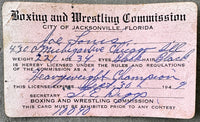 Boxing and Wrestling Commission
CITY OF JACKSONVILLE, FLORIDA
Joe Louis
4300 Michigan Ave Chicago Ill
WEIGHT 221 AGE 34 HAIR Black
IS HEREBY LICENSED UNDER THE RULES AND REGULATIONS
OF THE COMMISSION AS A
Heavyweight Champion
THIS LICENSE EXPIRES Sept 30 194
SECRETARY
BOXING AND WRESTLING COMMISSION
THIS CARD MUST BE EXHIBITED PRIOR TO ANY CONTEST